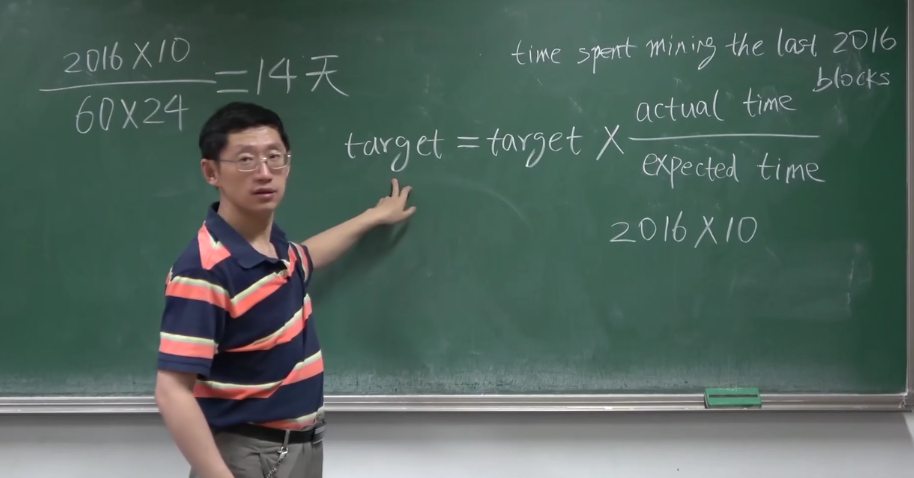 2016X10
60X24
=14天
time spent mining the last 2016
blocks
target = target X actual time
expected time
2016X10